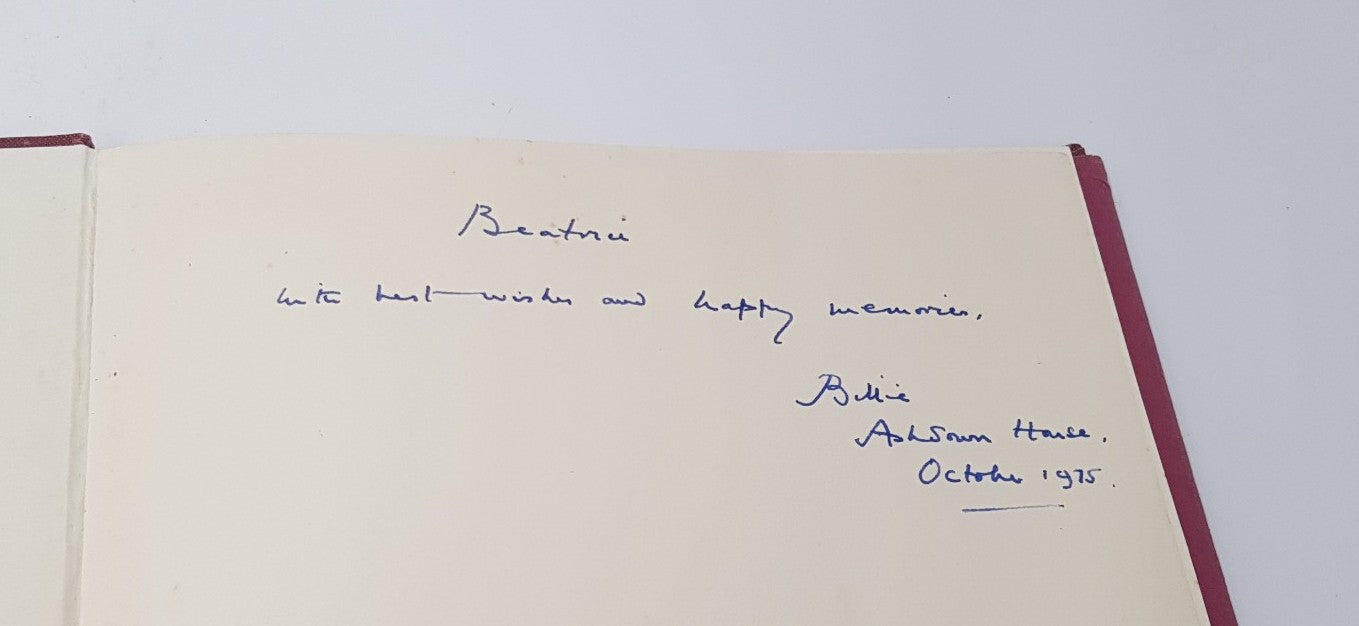 Beatrice
with best wishes and happy memories.
Billie
Ashdown House.
October 1975.